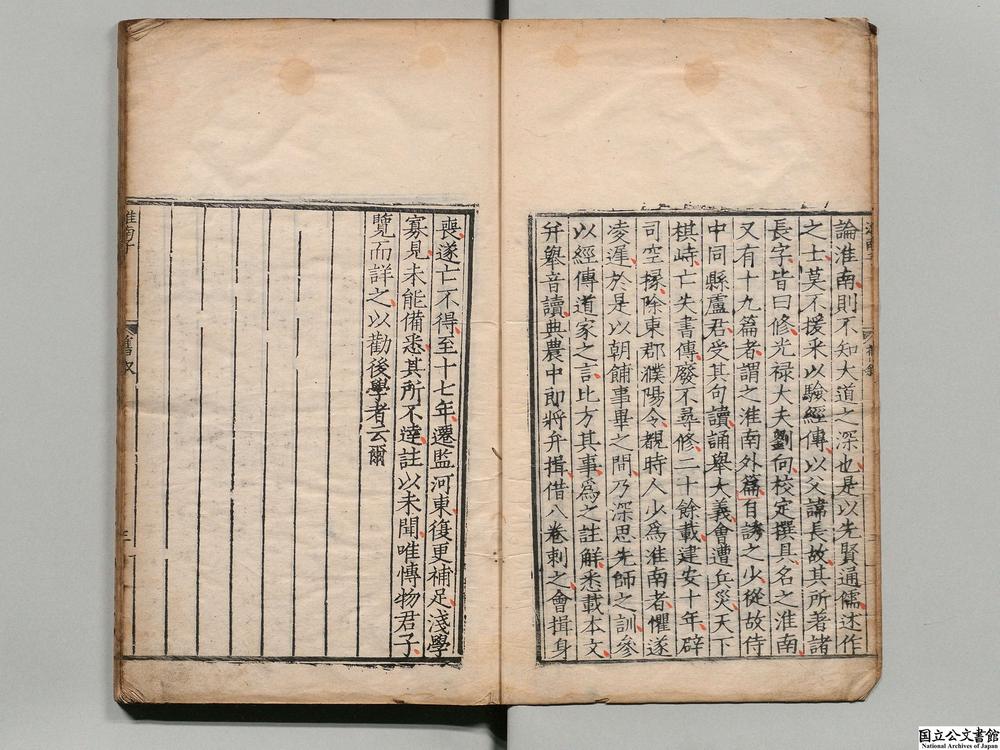 論淮南則不知大道之深也是以先賢通儒述作
之士莫不援采以驗經傳以父諱長故其所著諸
長字皆曰修光禄大夫劉向校定撰具名之淮南
又有十九篇者謂之淮南外篇自誘之少從故侍
中同縣盧君受其句讀誦舉大義會遭兵災天下
棋峙亡失書傳廢不尋修二十餘載建安十年辟
司空掾除東郡濮陽令覩時人少為淮南者懼遂
凌遲於是以朝餔事畢之間乃深思先師之訓參
以經傳道家之言比方其事為之註解悉載本文
并舉音讀典農中郎將弁揖借八卷刺之會揖身
喪遂亡不得至十七年遷監河東復更補足淺學
寡見未能備悉其所不達註以未聞唯慱物君子
覽而詳之以勸後學者云爾
淮南子
舊叙
国立公文書館
National Archives of Japan